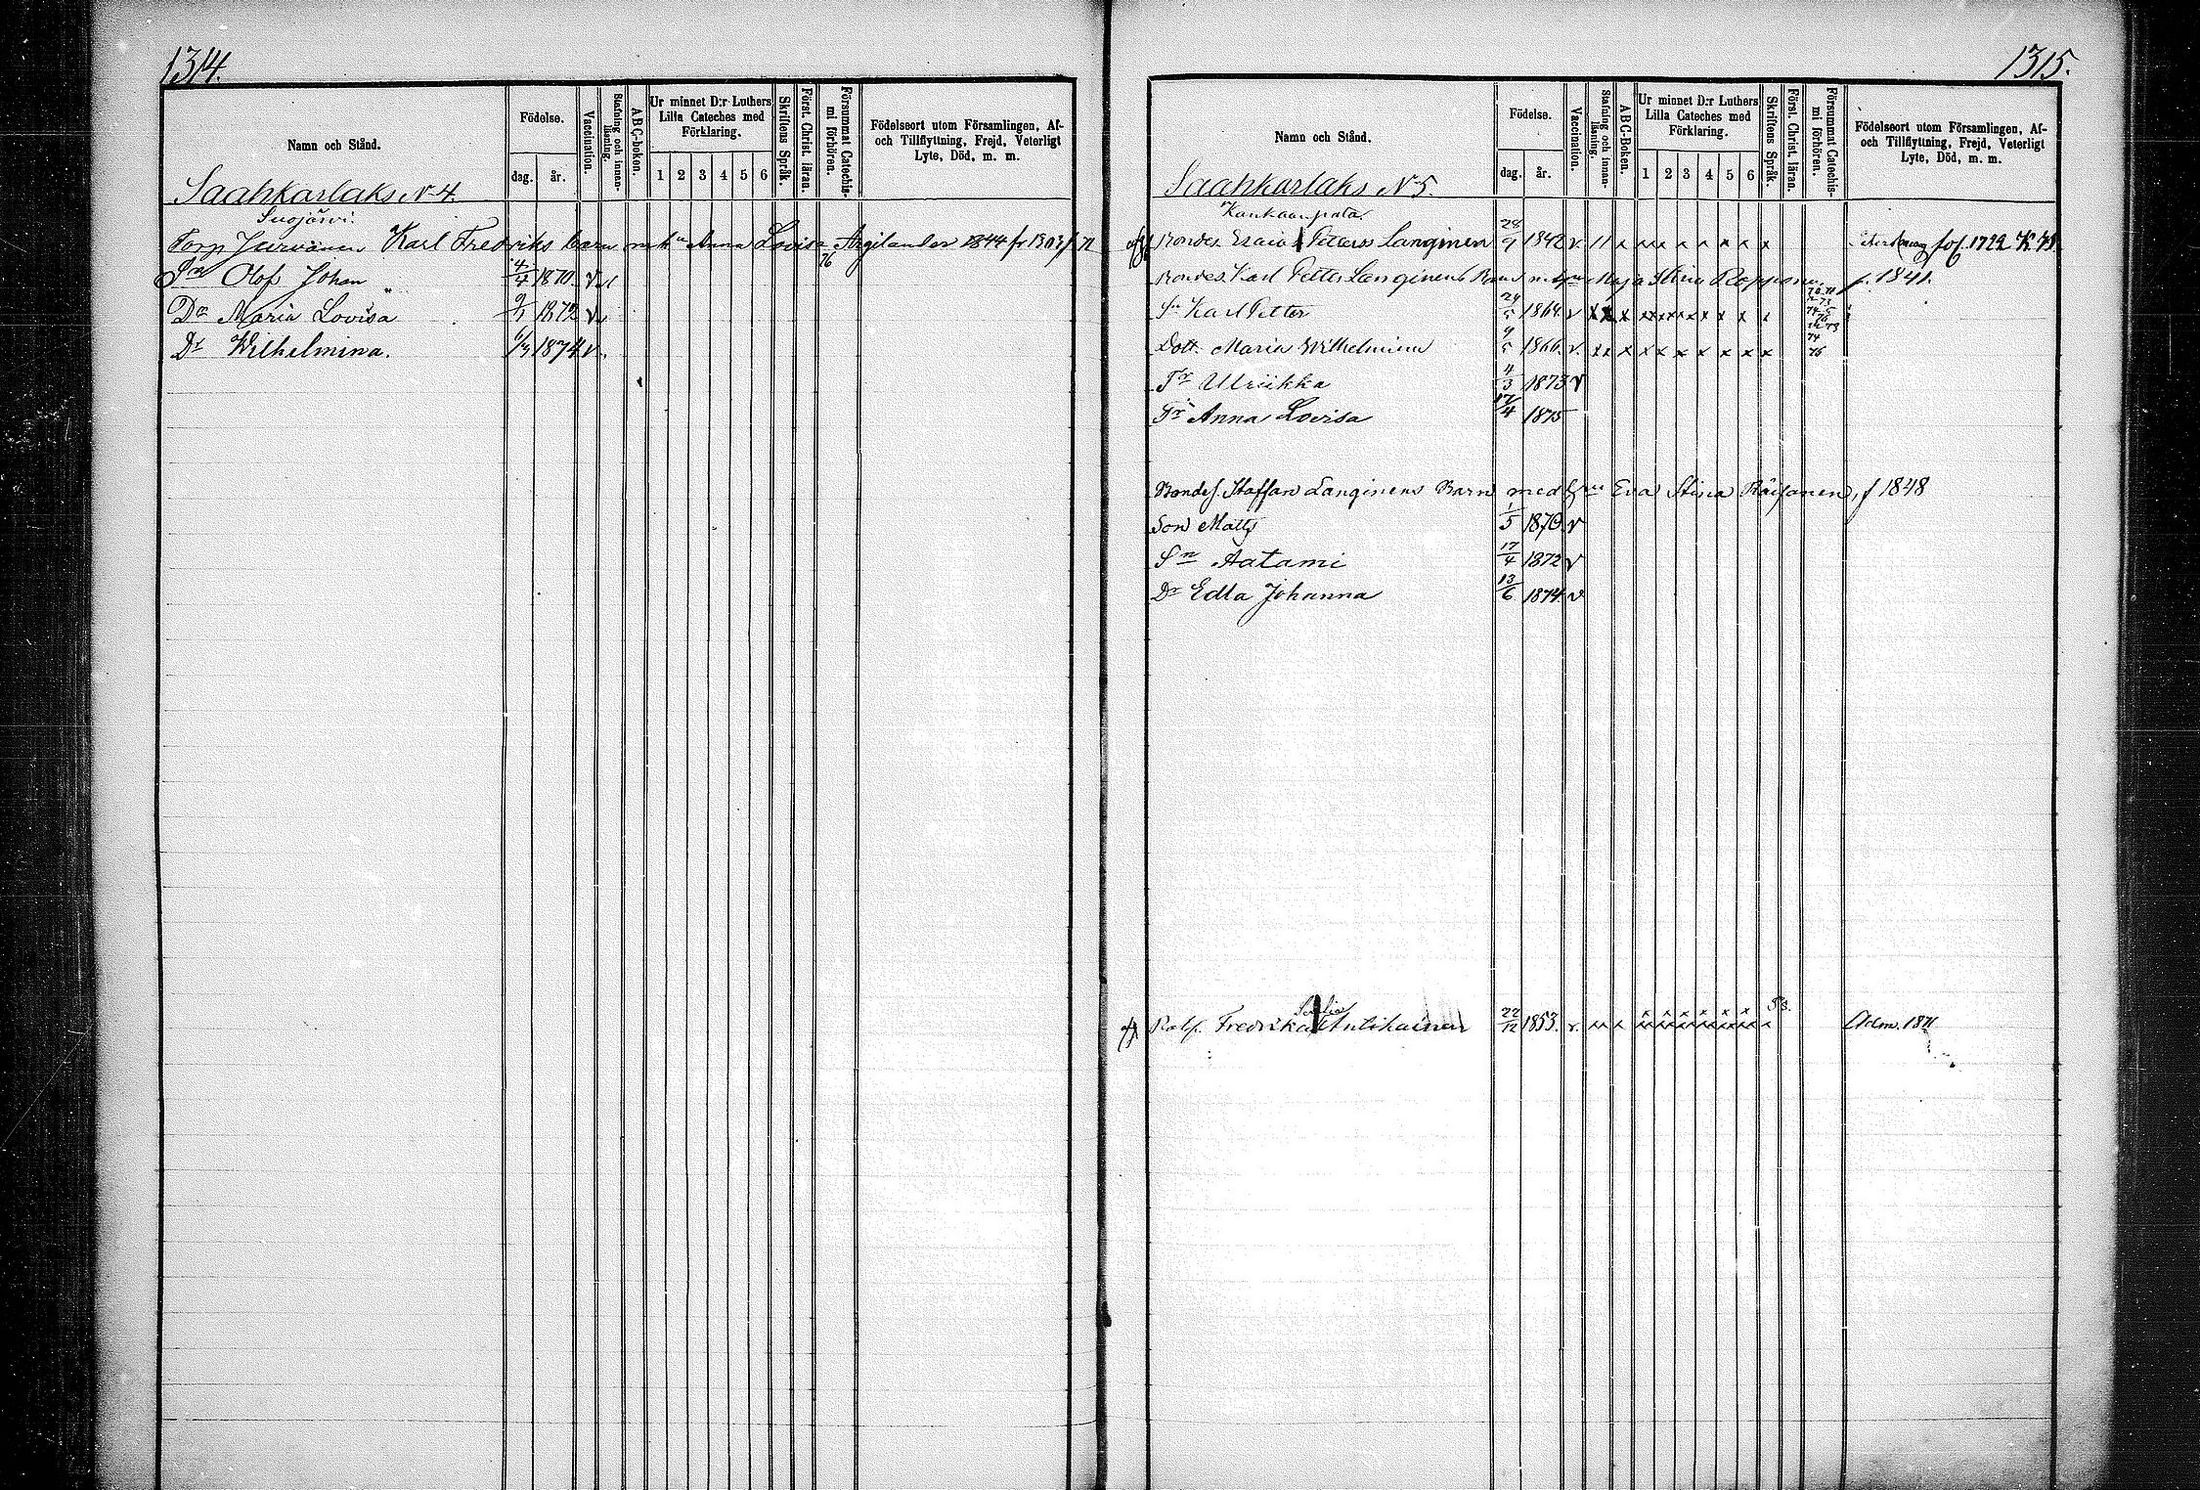 1314.
Namn och Stånd.
Födelse.
dag.
år.
Vaccination.
Stafning och innan-
läsning.
ABC-boken.
Ur minnet D:r Luthers
Lilla Cateches med
Förklaring.
1 2 3 4 5 6
Skriftens Språk.
Först. Christ. läran.
Försummat Catechis-
mi förhören.
Födelseort utom Församlingen, Af-
och Tillflyttning, Frejd, Veterligt
Lyte, Död, m. m.
Saahkarlaks N 4.
Suojärvi.
Torp Jurvanen Karl Fredriks barn m h:u Anna Lovisa Argilander 1844
76
Sn Olof Johan 4/4 1870. v
Dr Maria Lovisa 9/1 1872 v
Dr Wilhelmina. 6/3 1874 v.
1315.
Namn och Stånd.
Födelse.
dag.
år.
Vaccination.
Stafning och innan-
läsning.
ABC-Boken.
Ur minnet D:r Luthers
Lilla Cateches med
Förklaring.
1 2 3 4 5 6
Skriftens Språk.
Först. Christ. läran.
Försummat Catechis-
mi förhören.
Födelseort utom Församlingen, Af-
och Tillflyttning, Frejd, Veterligt
Lyte, Död, m. m.
Saahkarlaks N 5.
Bondes. Esaias Petterss Langinen 28/9 1842 v.
Bondes. Karl Petter Langinens Barn m. h:u Maja Stina Ropponen f. 1841.
Sn Karl Petter 24/5 1864 v
Dott. Maria Wilhelmina 9/5 1866. v.
Dr Ulriikka 4/3 1873 v
Dr Anna Lovisa 17/4 1875
Bondes. Staffan Langinens Barn med h:u Eva Stina Räisänen, f 1848
Son Matts 1/5 1870. v
Sn Aatami 17/4 1872 v
Dr Edla Johanna 13/6 1874. v
Fredrika Antikainen 22/12 1853. v. Adm. 1871